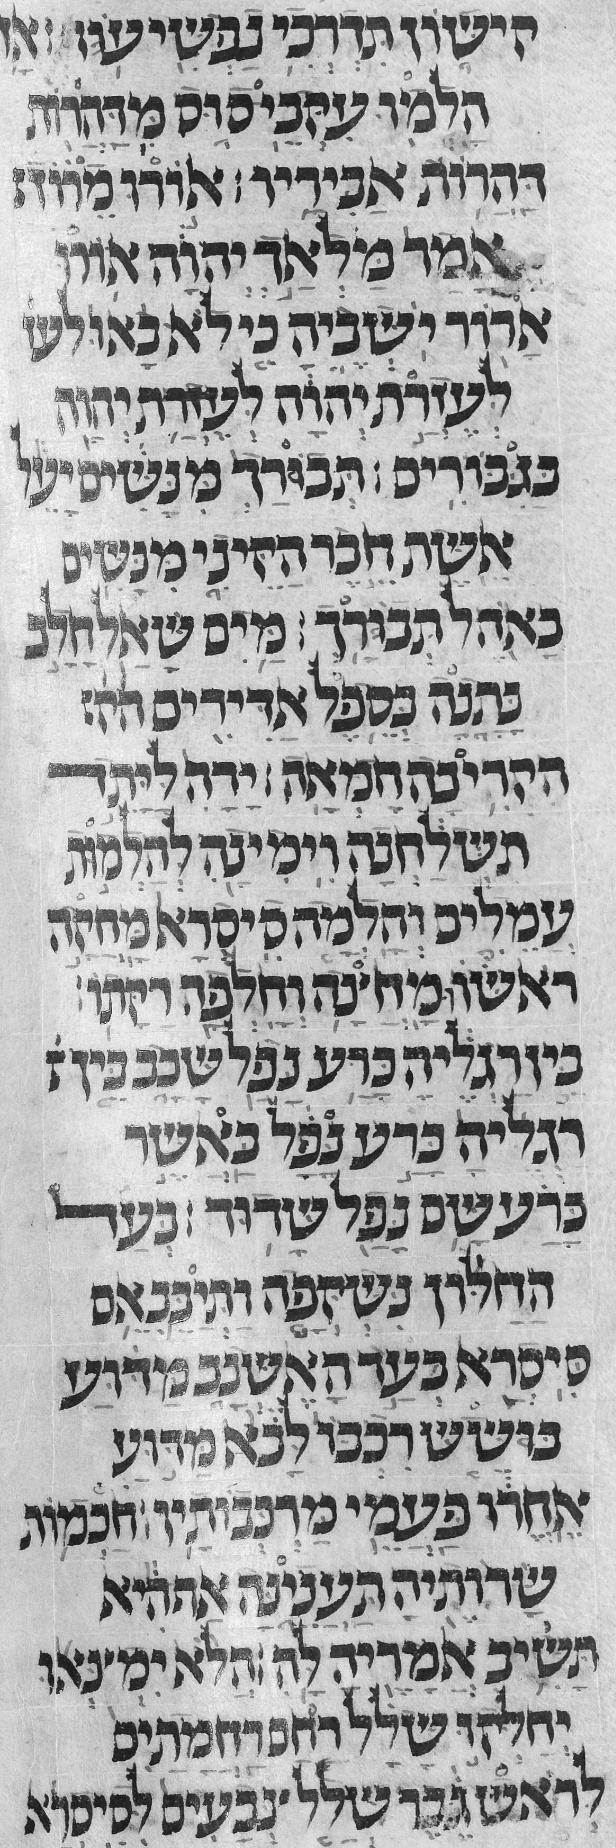 קישון תדרכי נפשי עוז : אז
הלמו עקבי סוס מדהרות
דהרות אביריו : אורו מרוז
אמר מלאך יהוה אורו
ארור ישביה כי לא באו לעז
לעזרת יהוה לעזרת יהוה
בגבורים : תבורך מנשים יעל
אשת חבר הקיני מנשים
באהל תבורך : מים שאל חלב
נתנה בספל אדירים הק
הקריבה חמאה : ידה ליתד
תשלחנה וימינה להלמות
עמלים והלמה סיסרא מחקה
ראשו ומחצה וחלפה רקתו :
בין רגליה כרע נפל שכב בין
רגליה כרע נפל באשר
כרע שם נפל שדוד : בעד
החלון נשקפה ותיבב אם
סיסרא בעד האשנב מדוע
בושש רכבו לבא מדוע
אחרו פעמי מרכבותיו : חכמות
שרותיה תענינה אף היא
תשיב אמריה לה : הלא ימצאו
יחלקו שלל רחם רחמתים
לראש גבר שלל צבעים לסיסרא